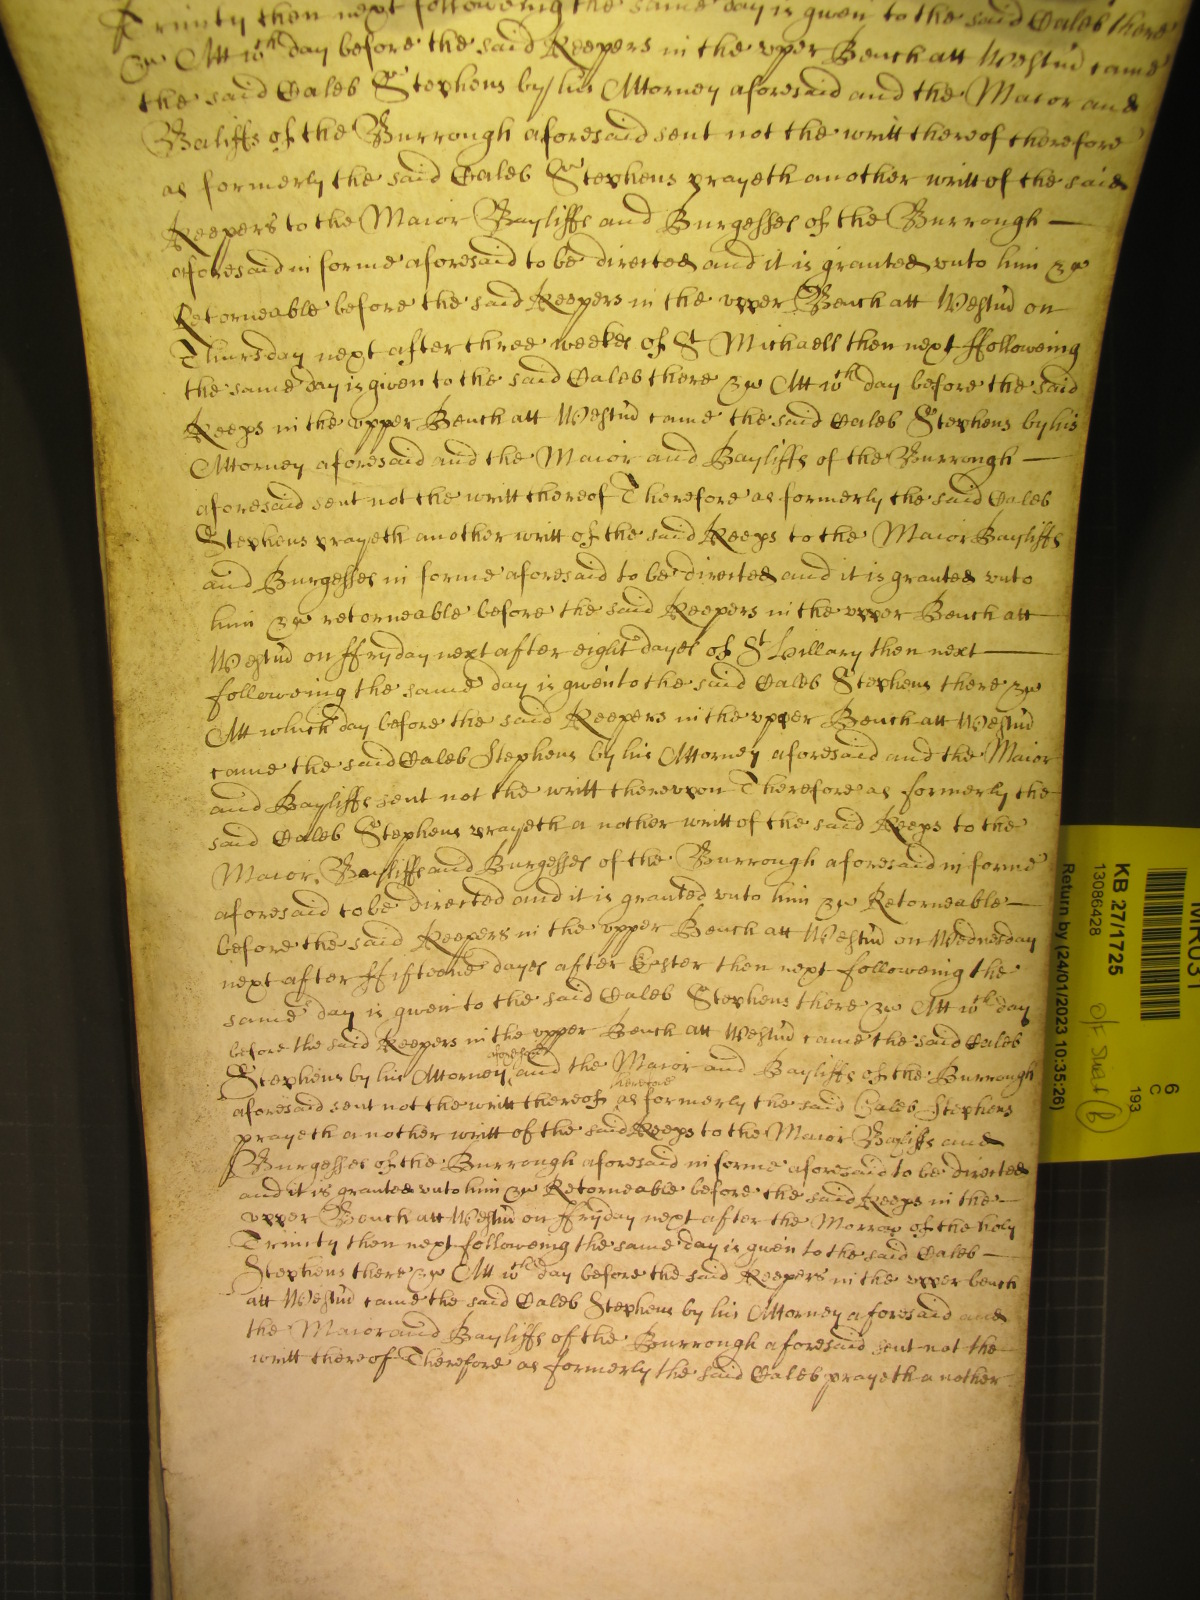 Trinity then next followeing the same day is given to the said Caleb there
&c Att wch day before the said Keepers in the upper Bench att Westm̃ came
the said Caleb Stephens by his Attorney aforesaid and the Maior and
Baliffs of the Burrough aforesaid sent not the writt thereof therefore
as formerly the said Caleb Stephens prayeth another writt of the said
Keepers to the Maior Bayliffs and Burgesses of the Burrough —
aforesaid in forme aforesaid to be directed and it is granted vnto him &c
Retorneable before the said Keepers in the vpper Bench att Westm̃ on
Thursday next after three weekes of St Michaell then next ffolloweing
the same day is given to the said Caleb there &c Att wch day before the said
Keeps in the vpper Bench att Westm̃ came the said Caleb Stephens by his
Attorney aforesaid and the Maior and Bayliffs of the Burrough —
aforesaid sent not the writt thereof Therefore as formerly the said Caleb
Stephens prayeth another writt of the said Keeps to the Maior Bayliffs
and Burgesses in forme aforesaid to be directed and it is granted vnto
him &c retorneable before the said Keepers in the vpper Bench att
Westm̃ on ffryday next after eight dayes of St Hillary then next —
followeing the same day is given to the said Caleb Stephens there &c
Att which day before the said Keepers in the vpper Bench att Westm̃
came the said Caleb Stephens by his Attorney aforesaid and the Maior
and Bayliffs sent not the writt therevpon Therefore as formerly the
said Caleb Stephens prayeth a nother writt of the said Keeps to the
Maior, Bayliffs and Burgesses of the Burrough aforesaid in forme
aforesaid to be directed and it is granted vnto him &c Retorneable —
before the said Keepers in the vpper Bench att Westm̃ on Wednesday
next after ffifteene dayes after Easter then next followeing the
same day is given to the said Caleb Stephens there &c Att wch day
before the said Keepers in the vpper Bench att Westm̃ came the said Caleb
Stephens by his Attorney aforesaid and the Maior and Bayliffs of the Burrough
aforesaid sent not the writt thereof therefore as formerly the said Caleb Stephens
prayeth a nother writt of the said Keeps to the Maior Bayliffs and
Burgesses of the Burrough aforesaid in forme aforesaid to be directed
and it is granted vnto him &c Retorneable before the said Keeps in the —
vpper Bench att Westm̃ on ffryday next after the Morrow of the holy
Trinity then next followeing the same day is given to the said Caleb —
Stephens there &c Att wch day before the said Keepers in the vpper bench
att Westm̃ came the said Caleb Stephens by his Attorney aforesaid and
the Maior and Bayliffs of the Burrough aforesaid sent not the
writt thereof Therefore as formerly the said Caleb prayeth a nother
MR031
6
C
193
KB 27/1725
13086428
Return by (24/01/2023 10:35:26)